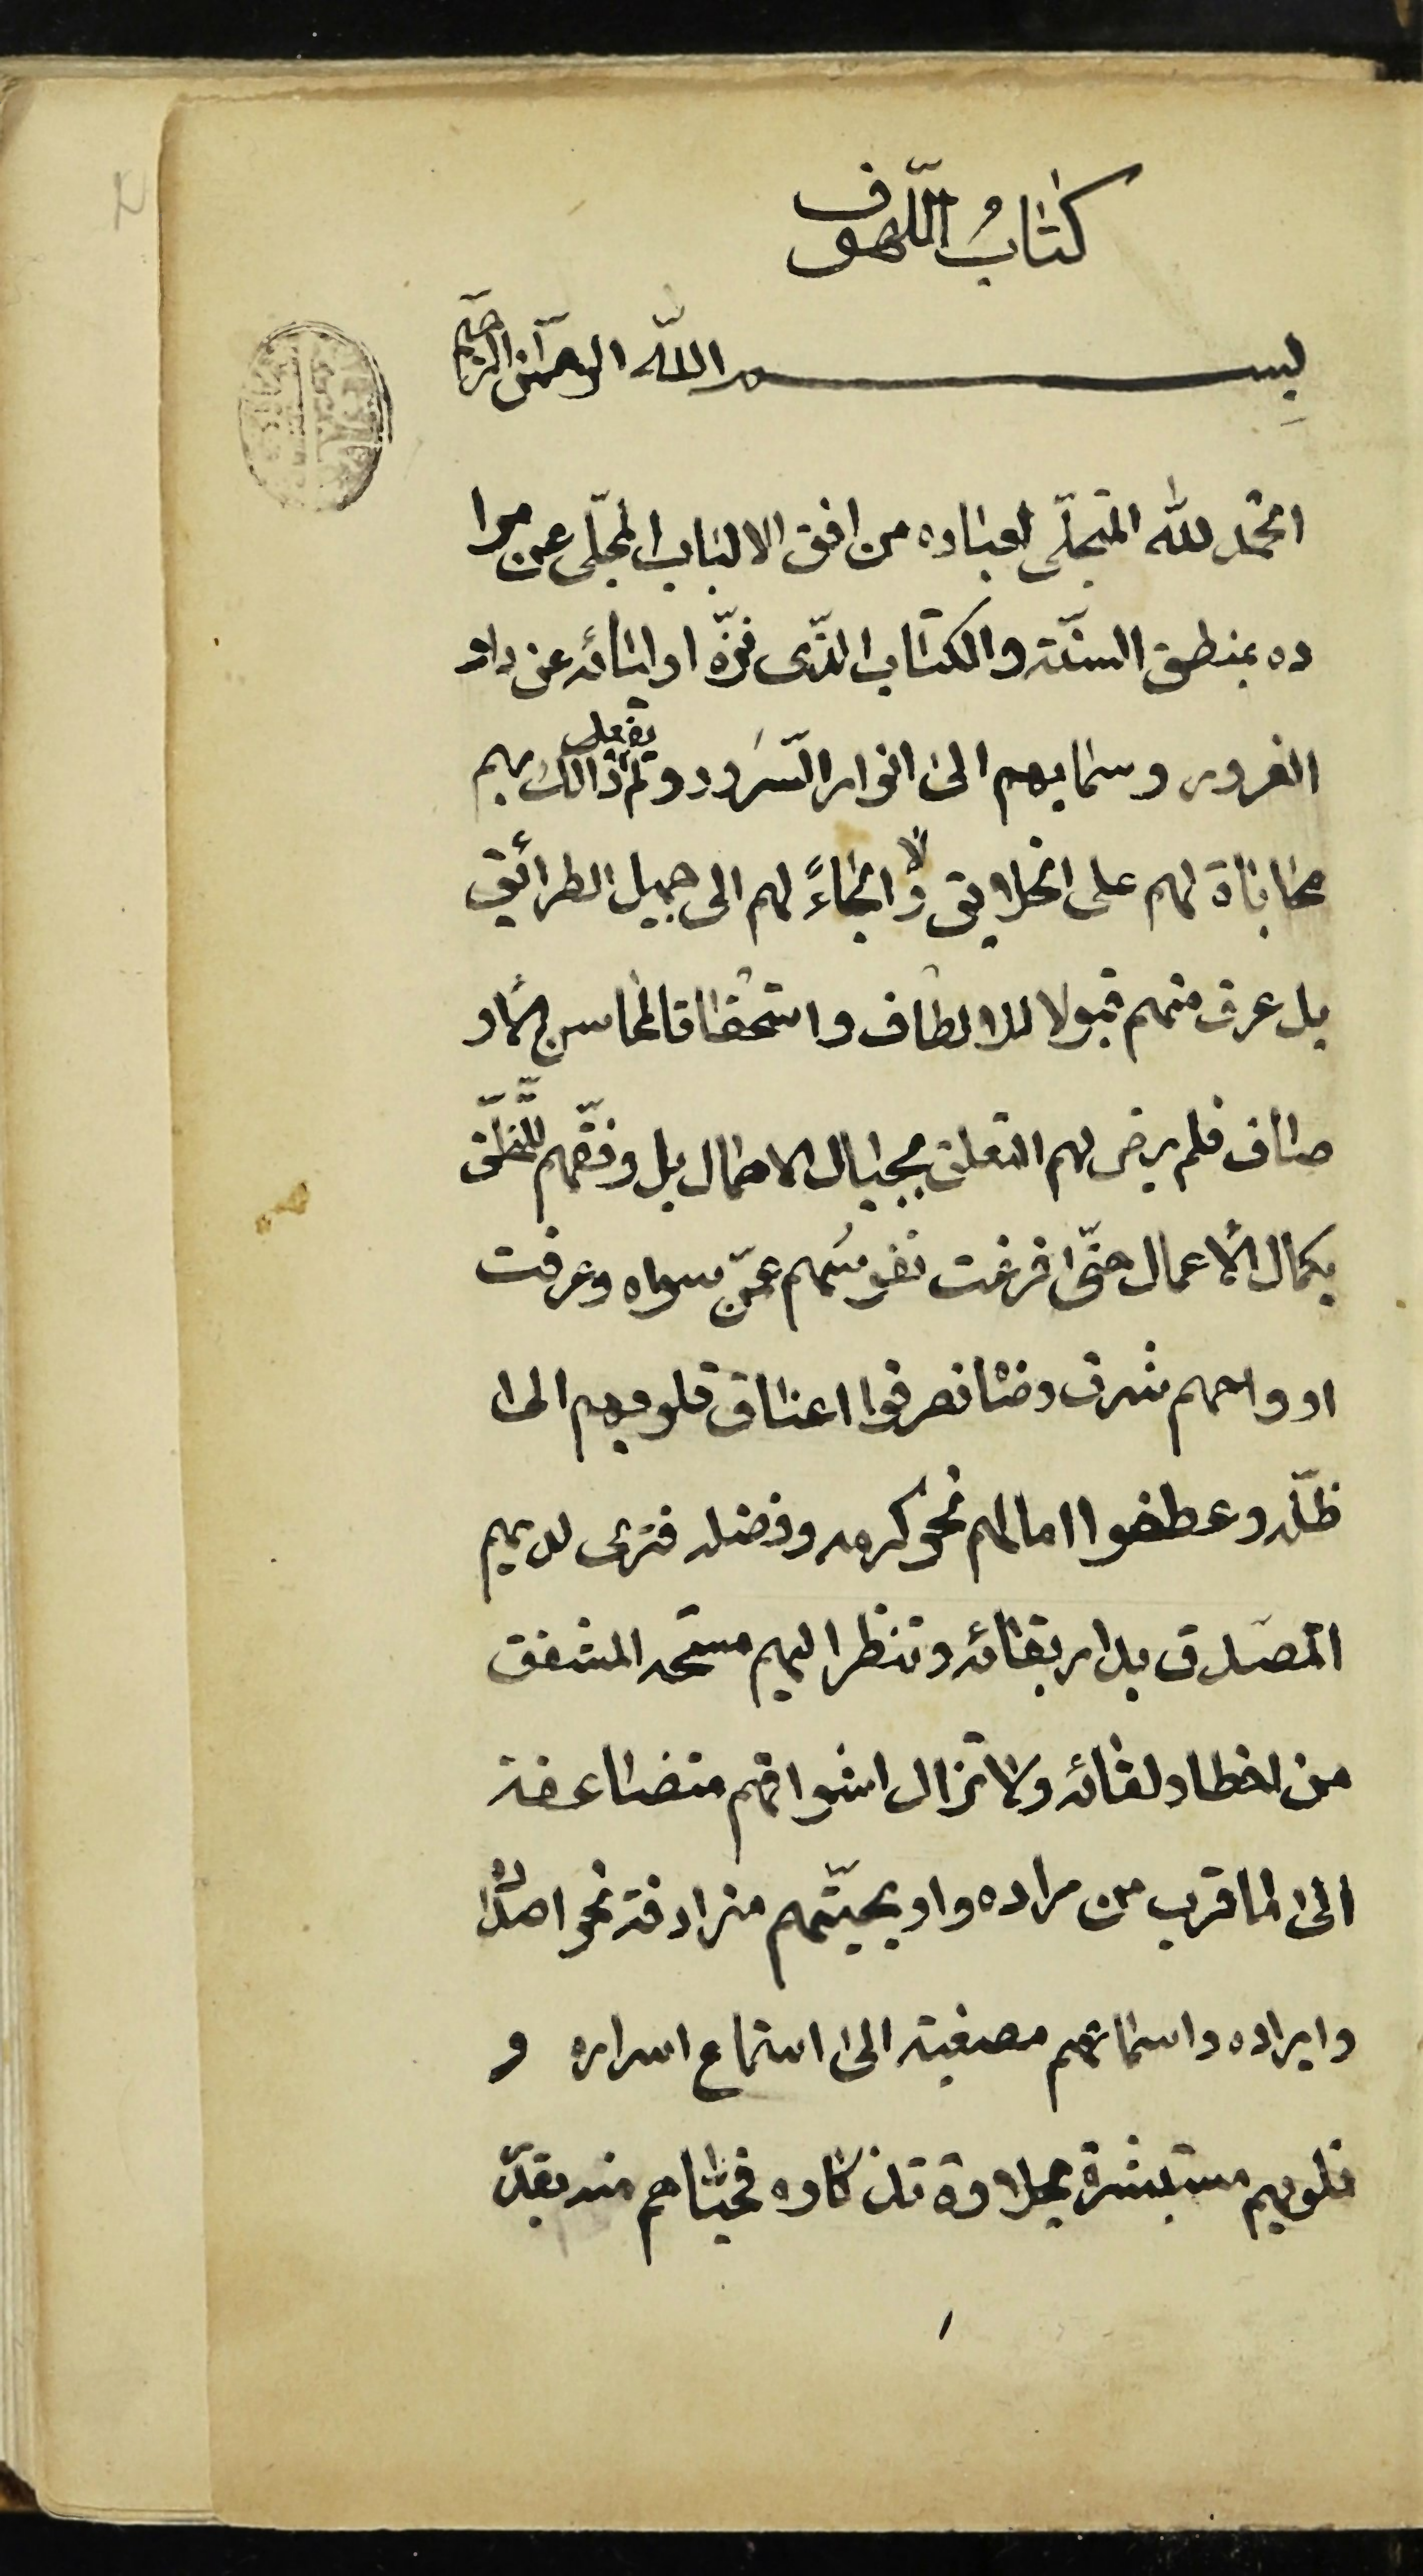 كتابُ اللّهوف
بِسم اللّه الرحمٰن الرّحيم
الحمد للّه المتجلّي لعباده من افق الالباب المجلّي عن مرا
ده بمنطق السنّة والكتاب الذّى نزّه اوليائه عن دار
الغرور وسما بهم الى انوار السّرور ولم يفعل ذالك بهم
محاباة لهم على الخلايق ولا الجاءً لهم الى جميل الطرائق
بل عرف منهم قبولا للالطاف واستحقاقا لمحاسن الاو
صاف فلم يرض لهم التعلق بحبال الاهمال بل وفّقهم للتخلّق
بكمال الأعمال حتّى فرغت نفوسُهم عمّن سواه وعرفت
ارواحهم شرف رضاه فصرفوا اعناق قلوبهم الى
ظلّه وعطفوا امالهم نحو كرمه وفضله فترى لديهم
المصدق بدار بقائه وتنظر اليهم مسحة المشفق
من اخطار لقائه ولا تزال اشواقهم متضاعفة
الى ما قرب من مراده واريحيّتهم مترادفة نحو اصداره
وايراده واسماعهم مصغية الى استماع اسراره و
قلوبهم مستبشرة بحلاوة تذكاره فحيّاهم منه بقدر